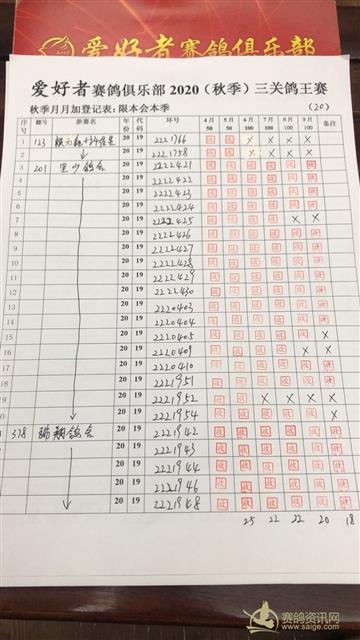 爱好者赛鸽俱乐部
爱好者赛鸽俱乐部 2020（秋季）三关鸽王赛
秋季月月加登记表：限本会本季 (20)
序号 棚号 参赛名 年份 代码 环号 4月50 5月50 6月100 7月100 8月100 9月100 备注
1 123 20 19 2221766 X X X X
2 20 19 2221758 X X X X
3 201 里少鸽舍 20 19 2222421
4 20 19 2222422
5 20 19 2222423
6 20 19 2222424
7 20 19 2222425 X X
8 20 19 2222426
9 20 19 2222427
10 20 19 2222428
11 20 19 2222429
12 20 19 2222430
13 20 19 2220403
14 20 19 2220404
15 20 19 2220405 X
16 20 19 2220409 X X
17 20 19 2220410
18 20 19 2221951
19 20 19 2221952 X X X X
20 19 2221954 X
378 瑞翔鸽舍 20 19 2221942
20 19 2221943
20 19 2221944
20 19 2221946
20 19 2221948
25 22 22 20 18
赛鸽资讯网
www.saige.com